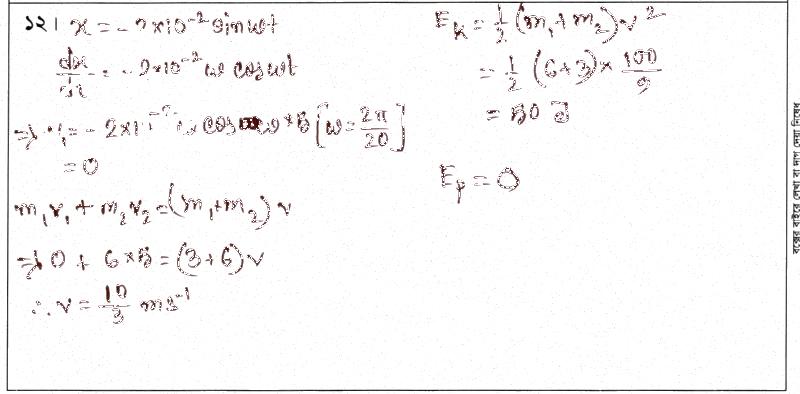 ১২। x = - 2×10⁻² sin ωt
dx/dt = - 2×10⁻² ω cos ωt
⇒ v₁ = - 2×10⁻² ω cos ω×5 [ω = 2π/20]
= 0
m₁v₁ + m₂v₂ = (m₁+m₂) v
⇒ 0 + 6×5 = (3+6) v
∴ v = 10/3 ms⁻¹
E_k = 1/2 (m₁+m₂) v²
= 1/2 (6+3) × 100/9
= 50 J
E_p = 0
বক্সের বাইরে লেখা বা দাগ দেয়া নিষেধ